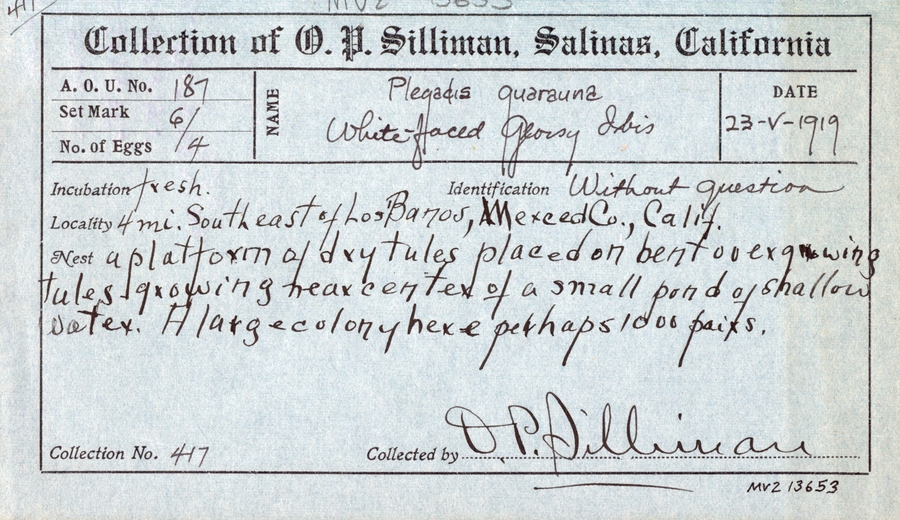 417
MVZ 13653
Collection of O. P. Silliman, Salinas, California
A. O. U. No. 187
Set Mark 6/
No. of Eggs 4
NAME
Plegadis guarauna
White-faced Glossy Ibis
DATE
23-V-1919
Incubation fresh. Identification Without question
Locality 4 mi. Southeast of Los Banos, Merced Co., Calif.
Nest a platform of dry tules placed on bent over growing
tules, growing near center of a small pond of shallow
water. A large colony here perhaps 1000 pairs.
Collection No. 417 Collected by O. P. Silliman
MVZ 13653